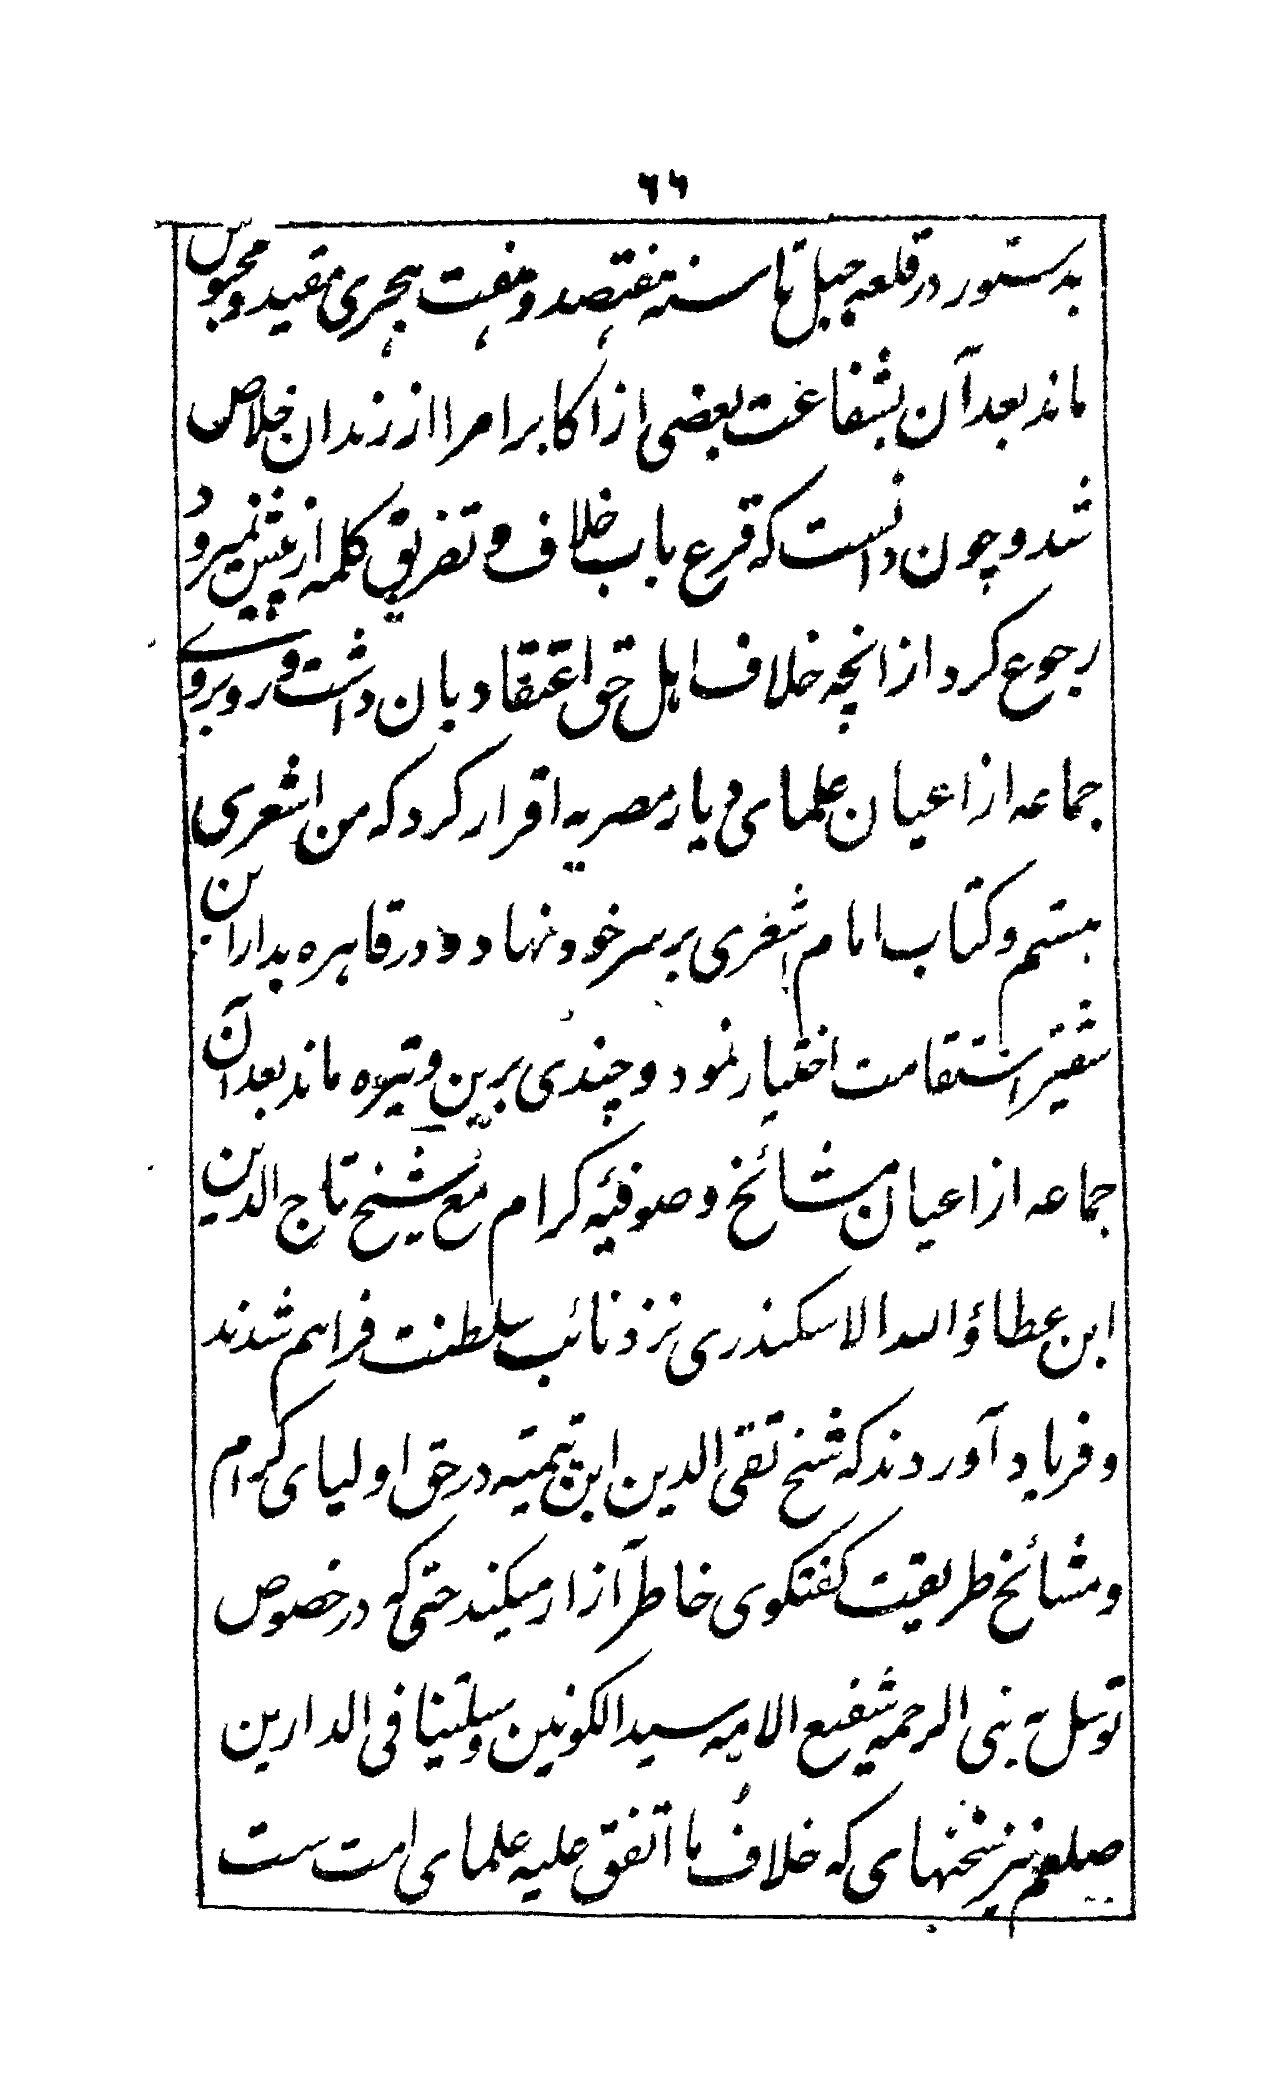 ٦٦
بدستور در قلعه جبل تا سنه هفتصد و هفت هجری مقید و محبوس
ماند بعد آن بشفاعت بعضی از اکابر امرا از زندان خلاص
شد و چون دانست که قرع باب خلاف و تفریق کلمه از پیش نمیرود
رجوع کرد از انچه خلاف اهل حق اعتقاد بان داشت و روبروی
جماعه از اعیان علمای دیار مصریه اقرار کرد که من اشعری
هستم و کتاب امام اشعری بر سر خود نهاد و در قاهره بدار ابن
شقیر استقامت اختیار نمود و چندی برین وتیره ماند بعد آن
جماعه از اعیان مشائخ و صوفیه کرام مع شیخ تاج الدین
ابن عطاؤ الله الاسکندری نزد نائب سلطنت فراهم شدند
و فریاد آوردند که شیخ تقی الدین ابن تیمیه در حق اولیای کرام
و مشائخ طریقت گفتگوی خاطر آزار میکند حتی که در خصوص
توسل به نبی الرحمه شفیع الامه سید الکونین وسیلتنا فی الدارین
صلعم نیز سخنهای که خلاف ما اتفق علیه علمای امت ست